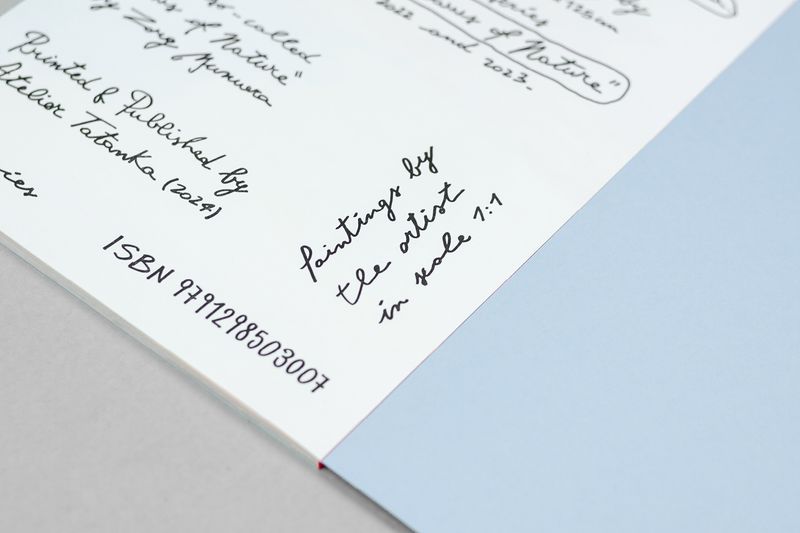 so-called
of Nature"
by Zorg Mumura
Printed & Published by
Atelier Tatanka (2024)
ies
ISBN 9791298503007
by
series
of Nature"
2022 and 2023.
Paintings by
the artist
in scale 1:1